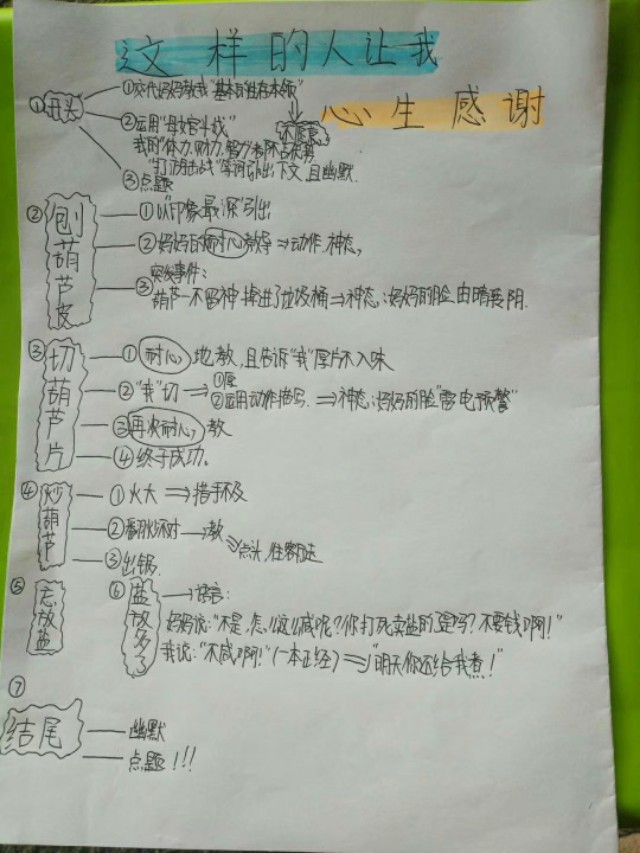 这样的人让我
心生感谢
①开头
①交代妈妈教我"基本的生存本领"
②运用"母女官斗戏"
不愿意
我的"体力,财力,智力"都不占优势
"打游击战"等词引出下文,且幽默.
③点题
②刨葫芦皮
①以"印象最深"引出
②妈妈的耐心教导⇒动作.神态,
③突发事件:
葫芦一不留神掉进了垃圾桶⇒神态:妈妈的脸由晴转阴.
③切葫芦片
①耐心地教,且告诉"我"厚片不入味
②"我"切→①厚
②运用动作描写.⇒神态:妈妈的脸"雷电预警"
③再次耐心教
④终于成功。
④炒葫芦
①火大⇒措手不及
②翻炒不对→教
⇒点头,往客厅走
③出锅.
⑤忘放盐
⑥盐放多了→语言:
妈妈说:"不是,怎么这么咸呢?你打死卖盐的了是吗?不要钱啊!"
我说:"不咸啊!"(一本正经)⇒"明天你还给我煮!"
⑦
结尾
幽默
点题!!!